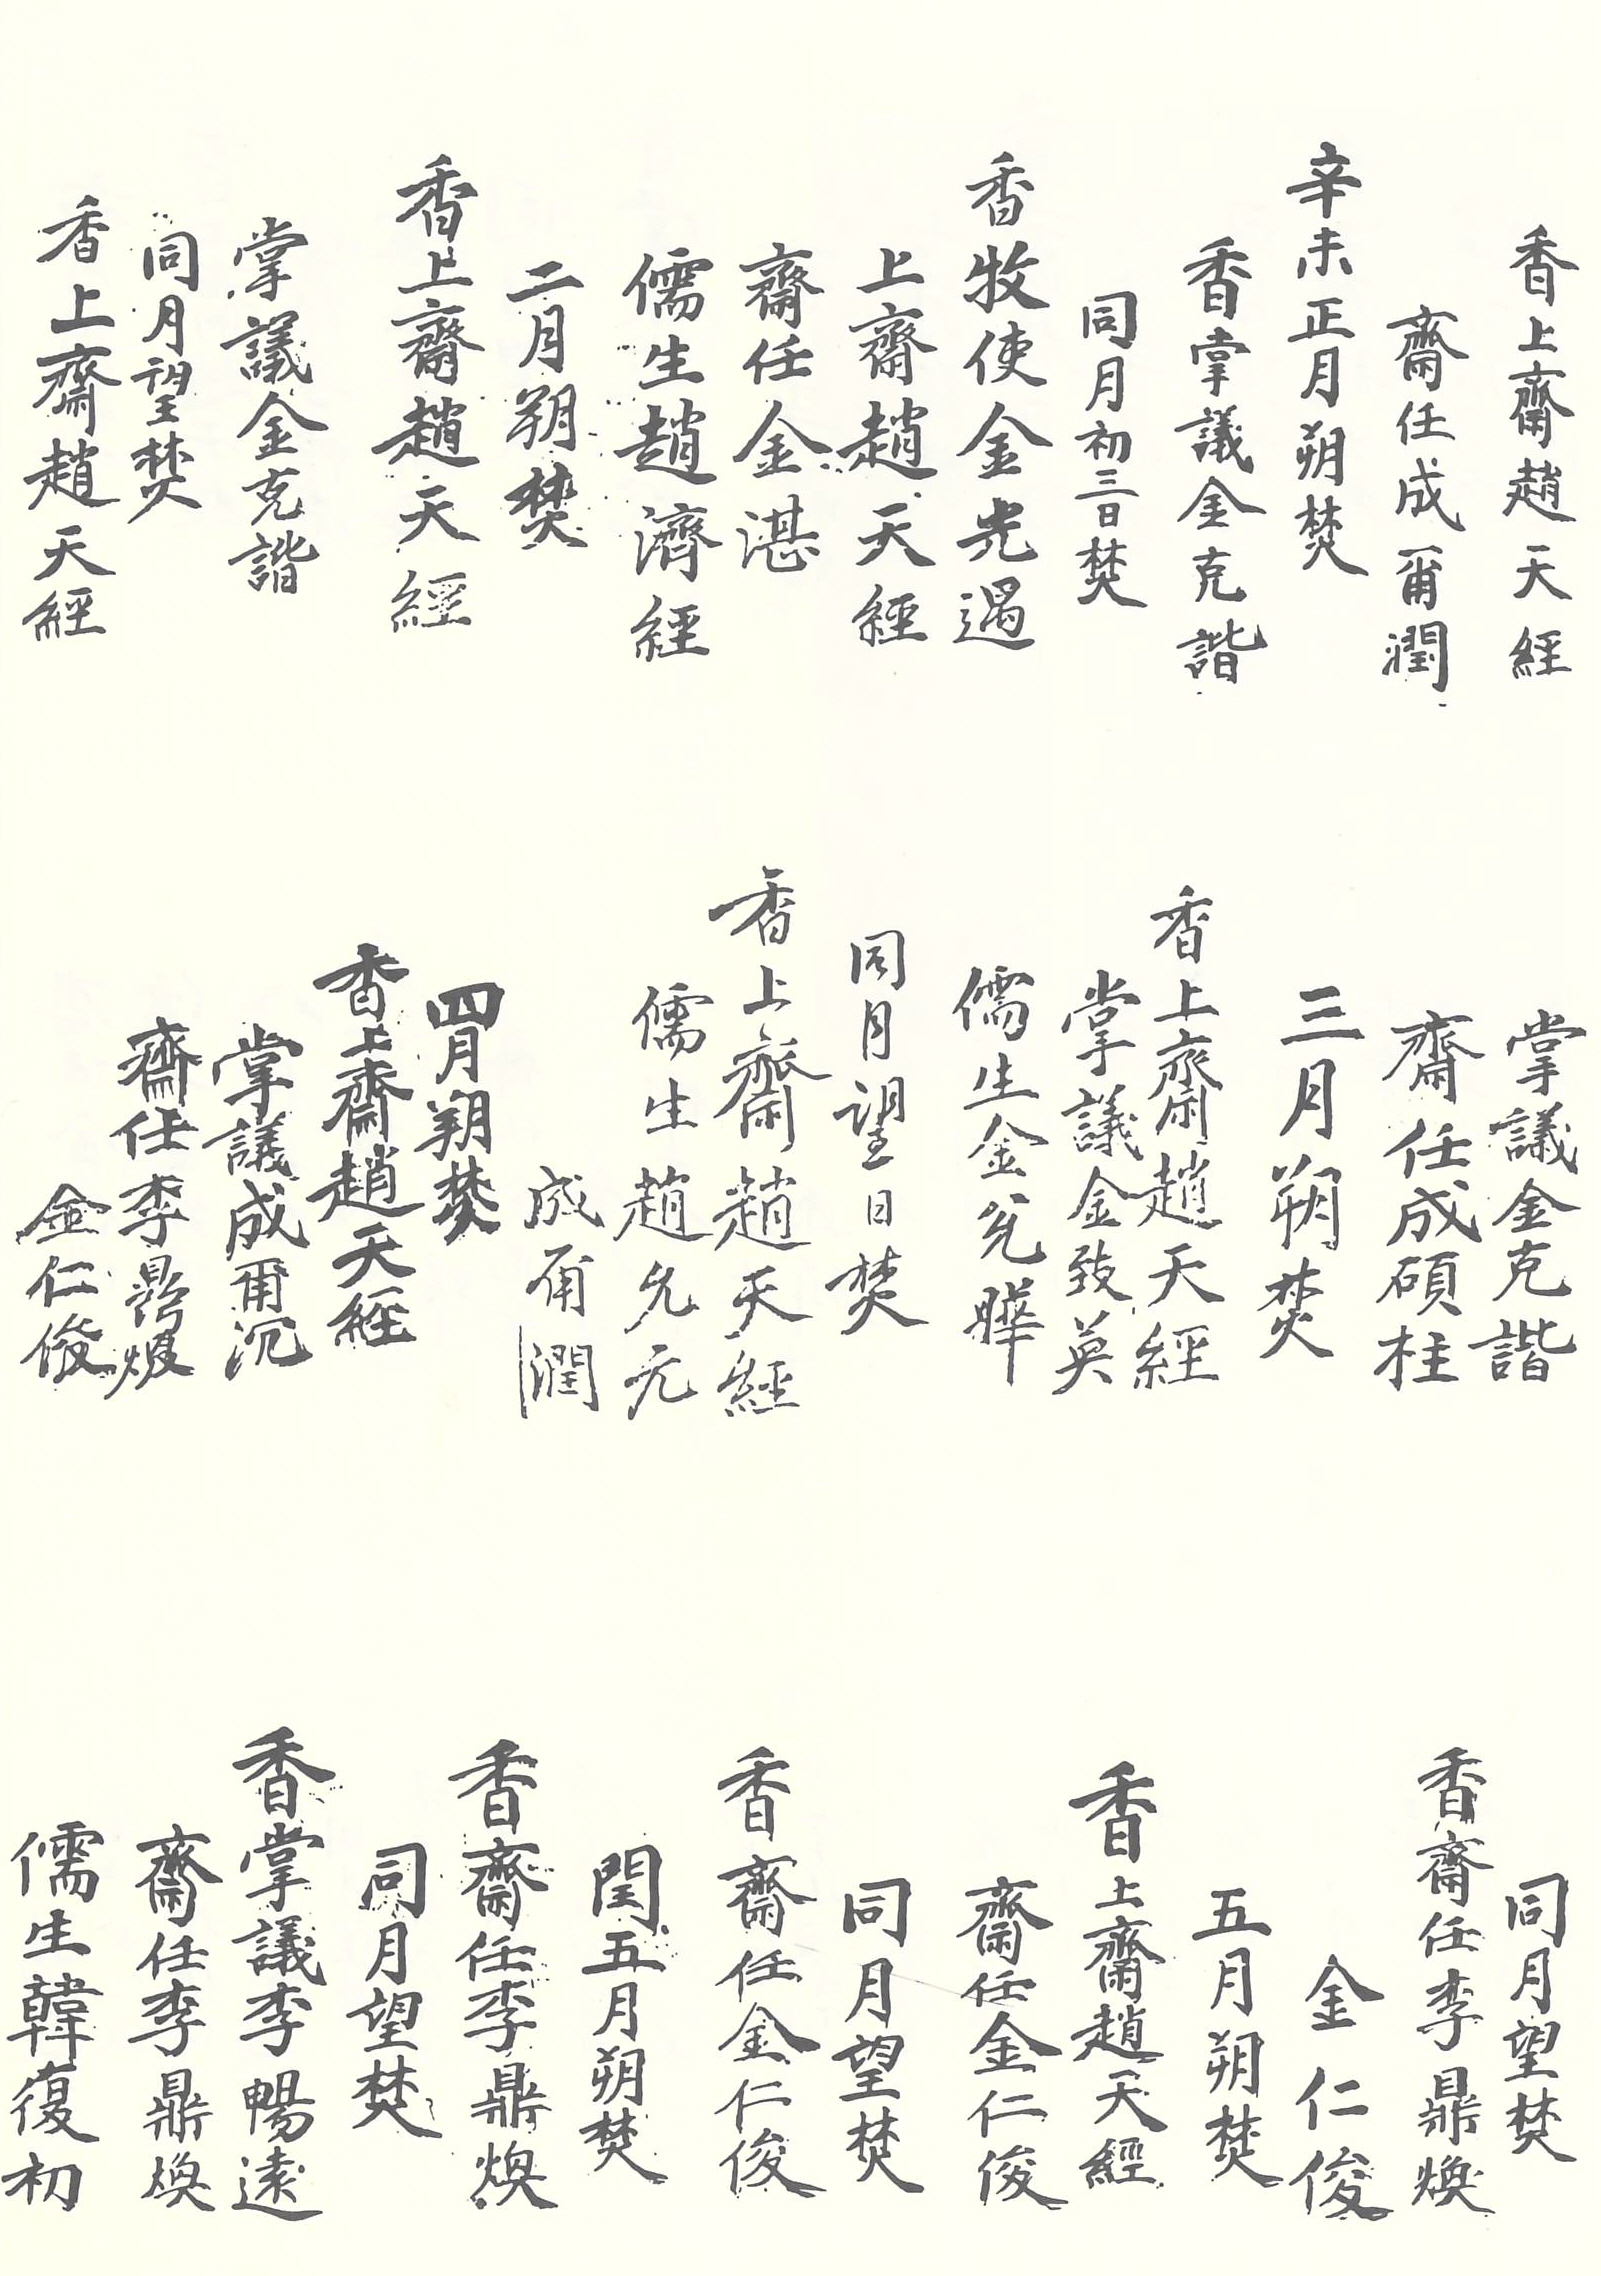 香上齋趙天經
齋任成爾潤
辛未正月朔焚
香掌議金克諧
同月初三日焚
香牧使金光遇
上齋趙天經
齋任金湛
儒生趙濟經
二月朔焚
香上齋趙天經
掌議金克諧
同月望焚
香上齋趙天經
掌議金克諧
齋任成碩柱
三月朔焚
香上齋趙天經
掌議金致英
儒生金允曄
同月望日焚
香上齋趙天經
儒生趙允元
成爾潤
四月朔焚
香上齋趙天經
掌議成爾沉
齋任李鼎煥
金仁俊
同月望焚
香齋任李鼎煥
金仁俊
五月朔焚
香上齋趙天經
齋任金仁俊
同月望焚
香齋任金仁俊
閏五月朔焚
香齋任李鼎煥
同月望焚
香掌議李暢遠
齋任李鼎煥
儒生韓復初